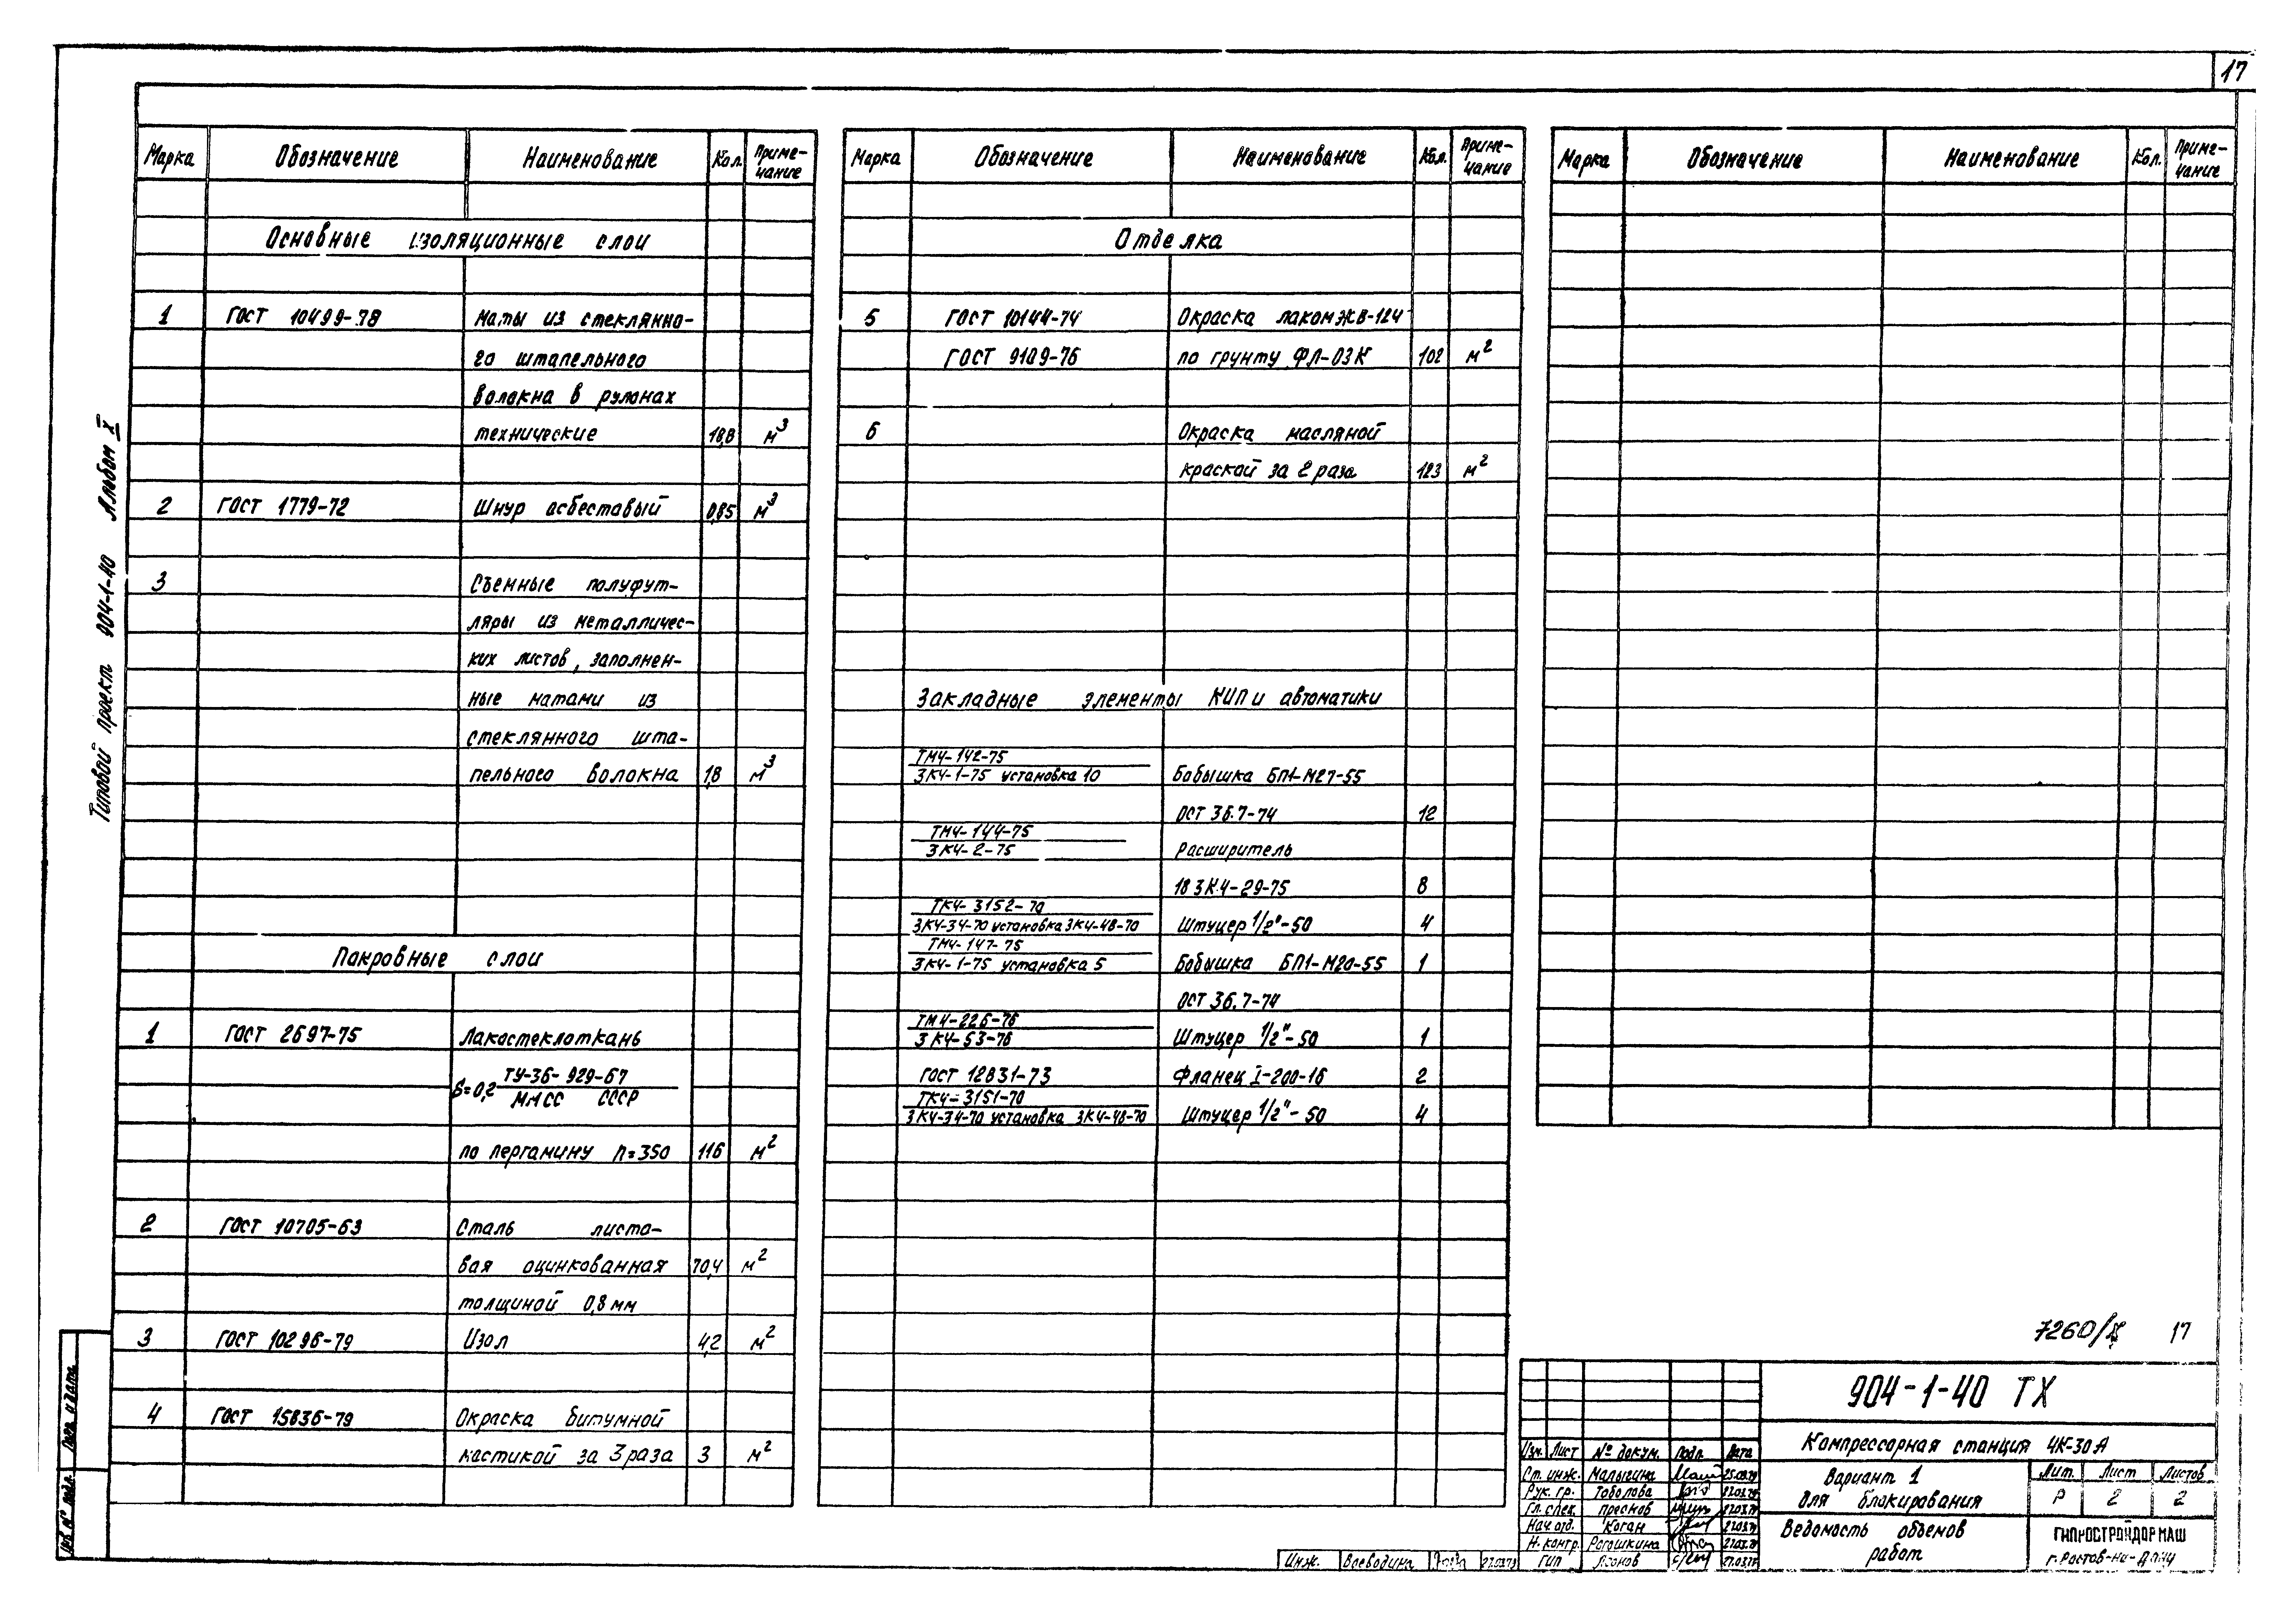 17
Типовой проект 904-1-40 Альбом X
Марка Обозначение Наименование Кол. Приме-
чание
Основные изоляционные слои
1 ГОСТ 10499-78 Маты из стеклянно-
го штапельного
волокна в рулонах
технические 18,8 м3
2 ГОСТ 1779-72 Шнур асбестовый 0,85 м3
3 Съемные полуфут-
ляры из металличес-
ких листов, заполнен-
ные матами из
стеклянного шта-
пельного волокна 1,8 м3
Покровные слои
1 ГОСТ 2697-75 Лакостеклоткань
δ=0,2 ТУ-36-929-67
ММСС СССР
по пергамину П=350 116 м2
2 ГОСТ 10705-63 Сталь листо-
вая оцинкованная 70,4 м2
толщиной 0,8 мм
3 ГОСТ 10296-79 Изол 4,2 м2
4 ГОСТ 15836-79 Окраска битумной
мастикой за 3 раза 3 м2
Марка Обозначение Наименование Кол. Приме-
чание
Отделка
5 ГОСТ 10144-74 Окраска лаком ЖВ-124
ГОСТ 9109-76 по грунту ФЛ-03К 102 м2
6 Окраска масляной
краской за 2 раза 123 м2
Закладные элементы КИП и автоматики
ТМ4-142-75
ЗК4-1-75 установка 10 Бобышка БП1-М27-55
ОСТ 36.7-74 12
ТМ4-144-75
ЗК4-2-75 Расширитель
18 ЗК4-29-75 8
ТК4-3152-70
ЗК4-34-70 установка ЗК4-48-70 Штуцер 1/2"-50 4
ТМ4-147-75
ЗК4-1-75 установка 5 Бобышка БП1-М20-55 1
ОСТ 36.7-74
ТМ4-226-76
ЗК4-53-76 Штуцер 1/2"-50 1
ГОСТ 12831-73 Фланец I-200-16 2
ТК4-3151-70
ЗК4-34-70 установка ЗК4-48-70 Штуцер 1/2"-50 4
Марка Обозначение Наименование Кол. Приме-
чание
7260/X 17
904-1-40 ТХ
Компрессорная станция 4К-30А
Изм. Лист № докум. Подп. Дата
Ст. инж. Малыгина
Рук. гр. Тоболова
Гл. спец. Преснов
Нач. отд. Коган
Н. контр. Рогошкина
ГИП
Инж. Воеводина
Вариант 1
для блокирования
Лит. Лист Листов
Р 2 2
Ведомость объемов
работ
ГИПРОСТРОЙДОРМАШ
г. Ростов-на-Дону
Подп. и дата
Инв. № подл.